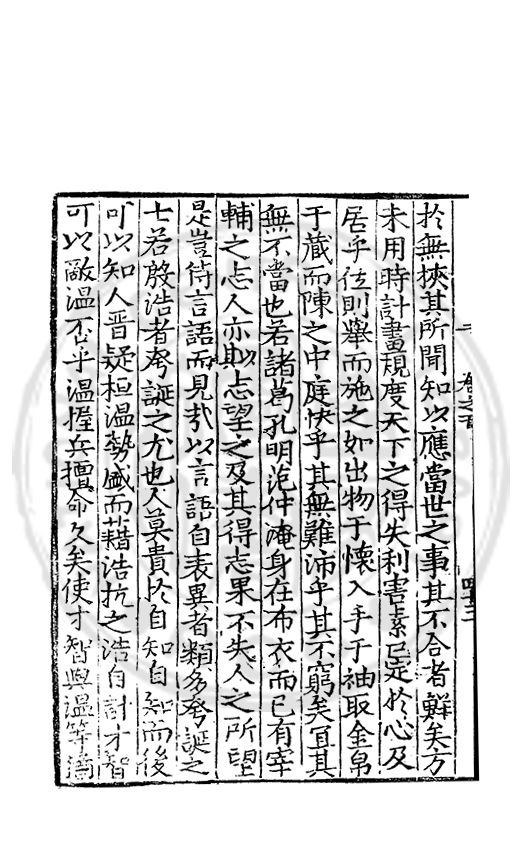 於無挾其所聞知以應當世之事其不合者鮮矣方
未用時計畫規度天下之得失利害素已定於心及
居乎位則舉而施之如出物于懷入手于袖取金帛
于藏而陳之中庭快乎其無難沛乎其不窮矣宜其
無不當也若諸葛孔明范仲淹身在布衣而已有宰
輔之志人亦以其志望之及其得志果不失人之所望
是豈待言語而見哉以言語自表異者類多夸誕之
士若殷浩者夸誕之尤也人莫貴於自知自知而後
可以知人晋疑桓溫勢盛而藉浩抗之浩自計才智
可以敵溫否乎溫握兵擅命久矣使才智與溫等